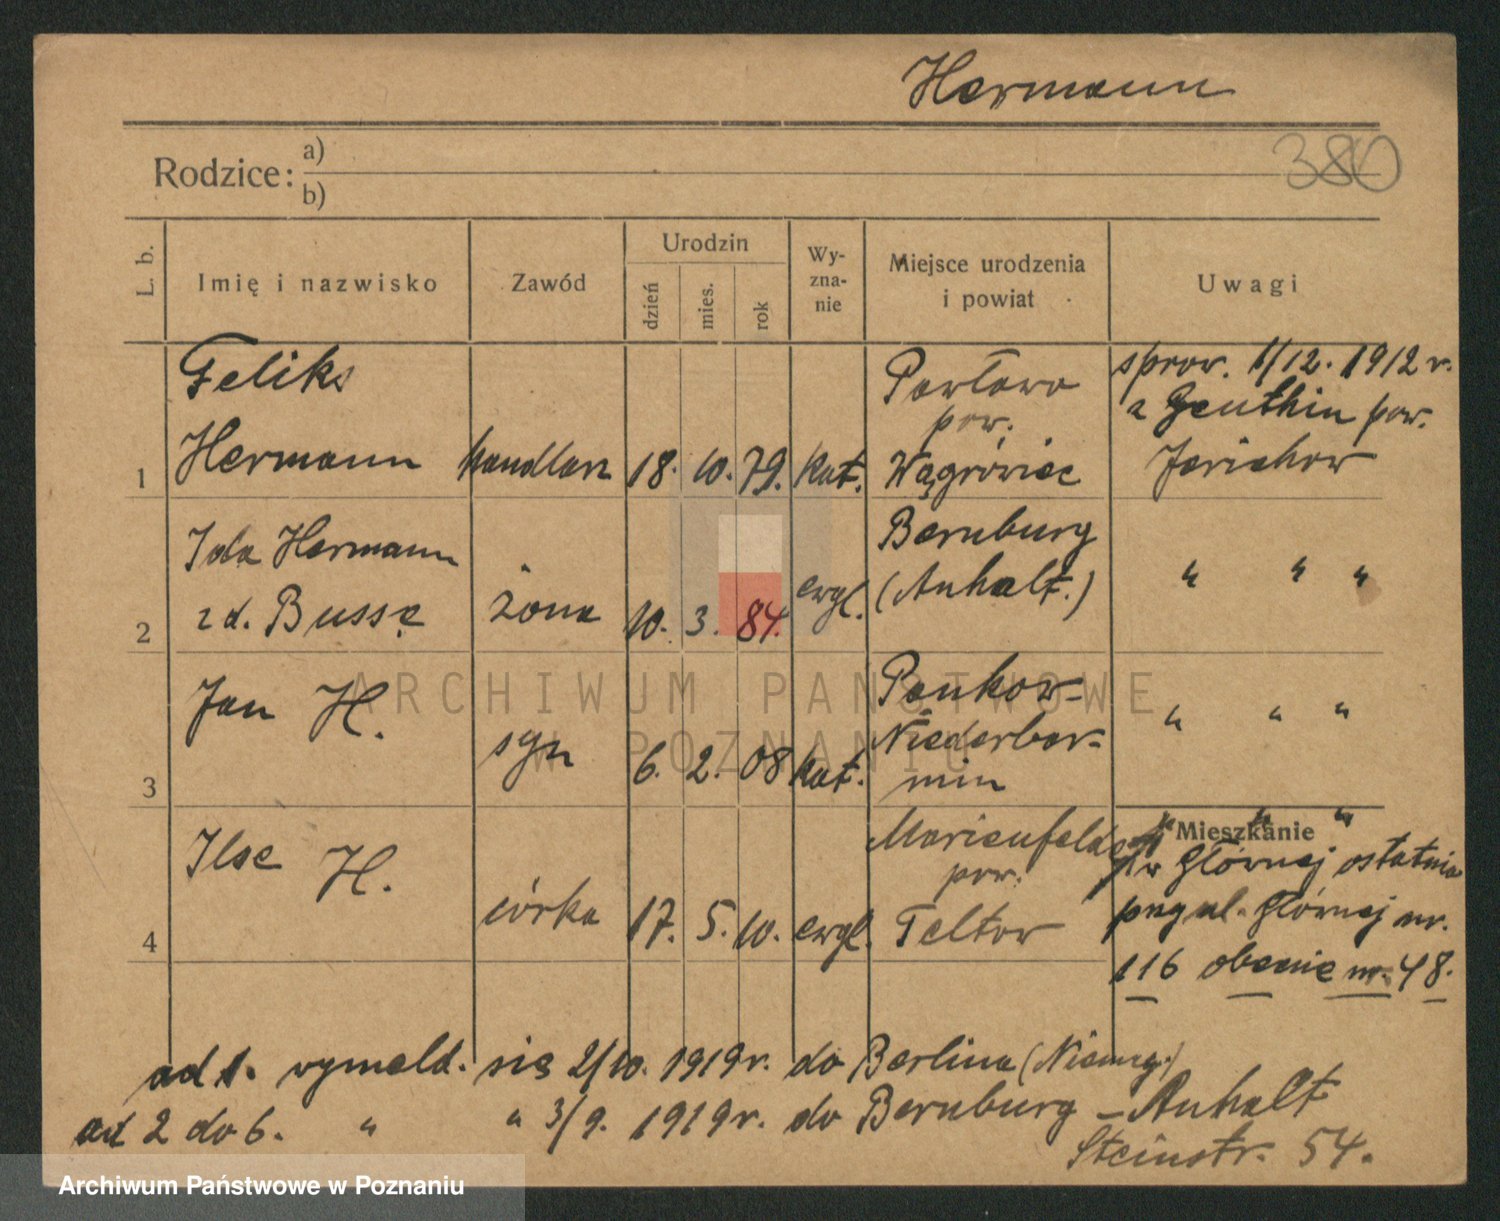 Hermann
380
Rodzice: a)
b)
L. b.
Imię i nazwisko
Zawód
Urodzin
dzień
mies.
rok
Wy-
zna-
nie
Miejsce urodzenia
i powiat
Uwagi
1 Feliks
Hermann handlarz 18. 10. 79. kat. Pawłowo
pow.
Wągrówiec sprow. 1/12. 1912 r.
z Genthin pow.
Jerichow
2 Ida Hermann
zd. Busse żona 10. 3. 84. ewgl. Bernburg
(Anhalt.) " " "
3 Jan H. syn 6. 2. 08 kat. Pankow-
Niederbar-
min " " "
4 Ilse H. córka 17. 5. 10. ewgl. Marienfelde
pow.
Teltow " " "
Mieszkanie
w Głównej ostatnio
przy ul. Głównej nr.
116 obecnie nr. 48.
ad 1. wymeld. się 2/10. 1919 r. do Berlina (Niemcy)
ad 2 do 6. " " 3/9. 1919 r. do Bernburg - Anhalt
Steinstr. 54.
ARCHIWUM PAŃSTWOWE
W POZNANIU
Archiwum Państwowe w Poznaniu